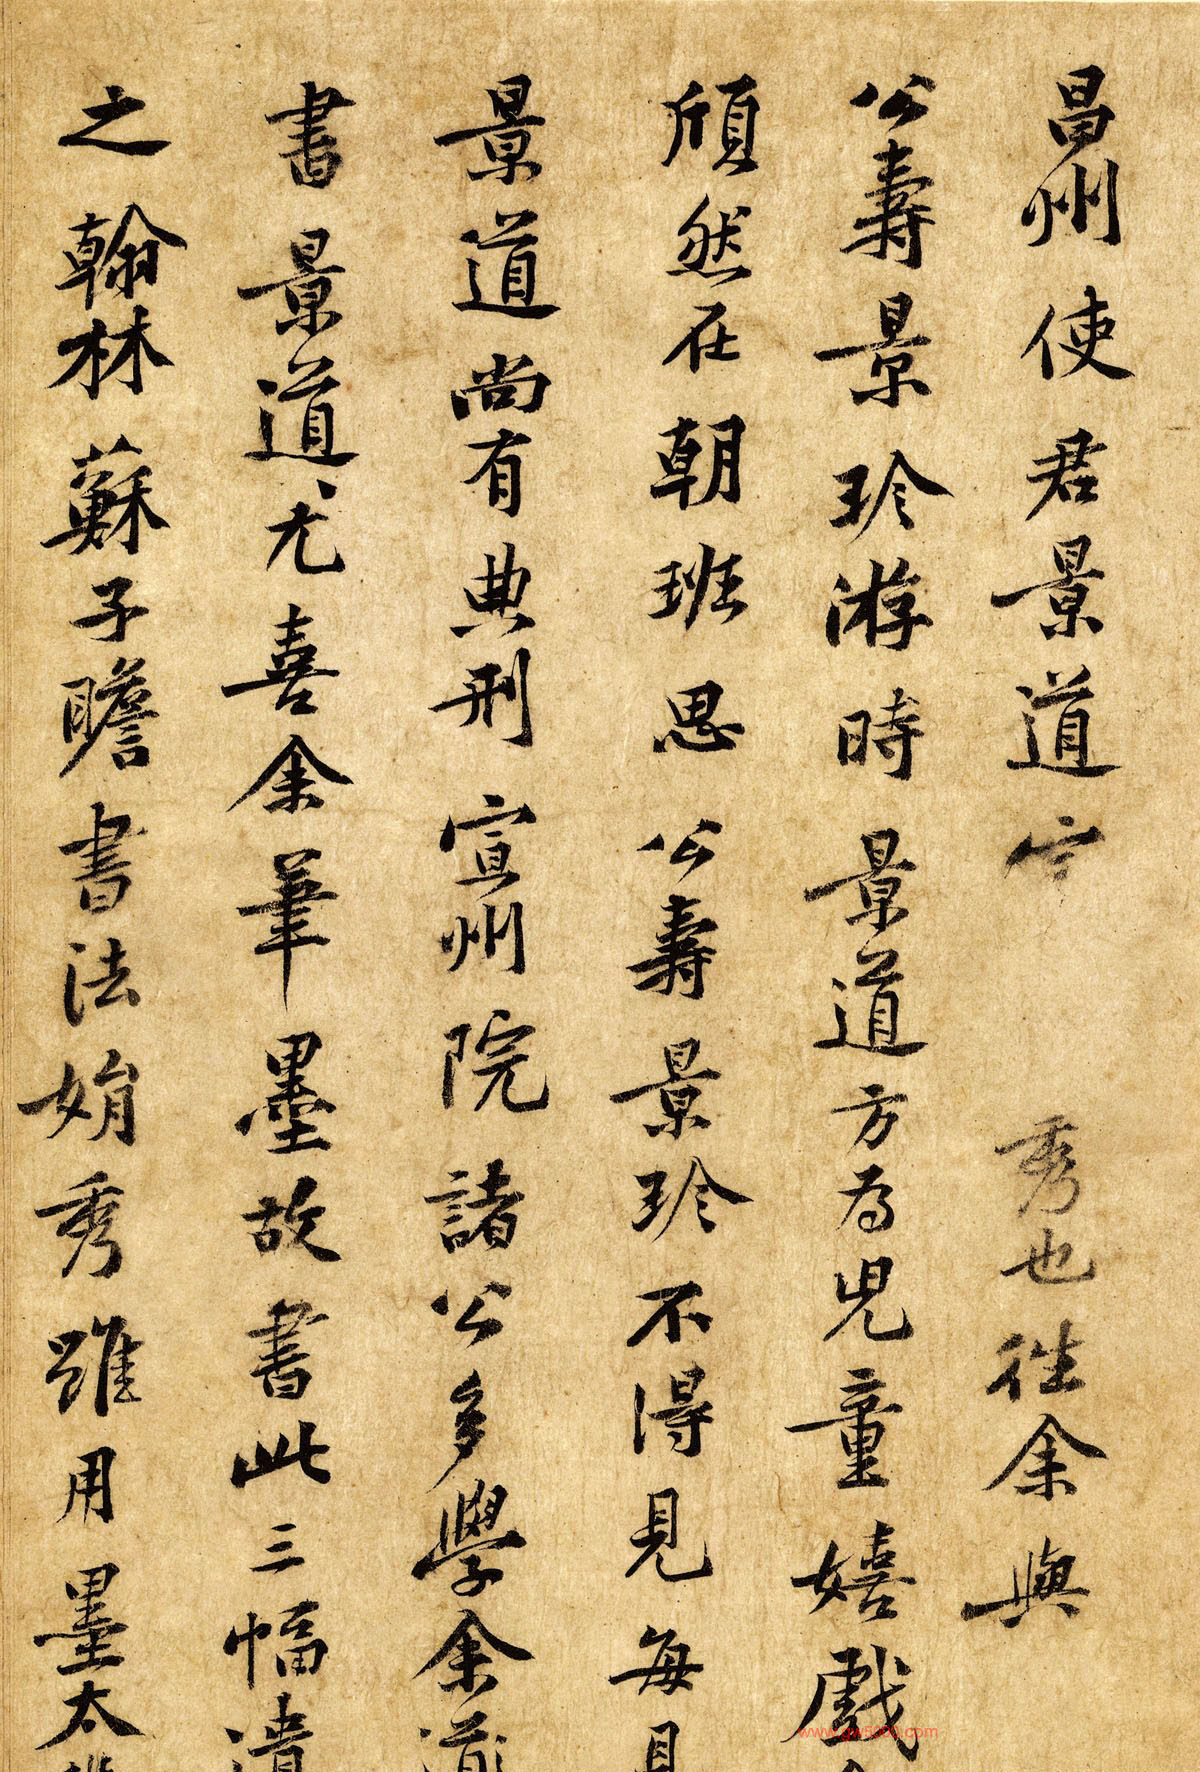 昌州使君景道宗秀也往余與
公壽景珍游時景道方為兒童嬉戲
頎然在朝班思公壽景珍不得見每見
景道尚有典刑宣州院諸公多學余
書景道尤喜余筆墨故書此三幅遺
之翰林蘇子瞻書法娟秀雖用墨太
www.gw5000.com